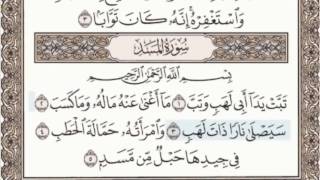 وَٱسْتَغْفِرْهُ إِنَّهُۥ كَانَ تَوَّابًۢا ٣
سُورَةُ المَسَدِ
بِسْمِ ٱللَّهِ ٱلرَّحْمَٰنِ ٱلرَّحِيمِ
تَبَّتْ يَدَآ أَبِى لَهَبٍ وَتَبَّ ١ مَآ أَغْنَىٰ عَنْهُ مَالُهُۥ وَمَا كَسَبَ ٢
سَيَصْلَىٰ نَارًا ذَاتَ لَهَبٍ ٣ وَٱمْرَأَتُهُۥ حَمَّالَةَ ٱلْحَطَبِ ٤
فِى جِيدِهَا حَبْلٌ مِّن مَّسَدٍۭ ٥